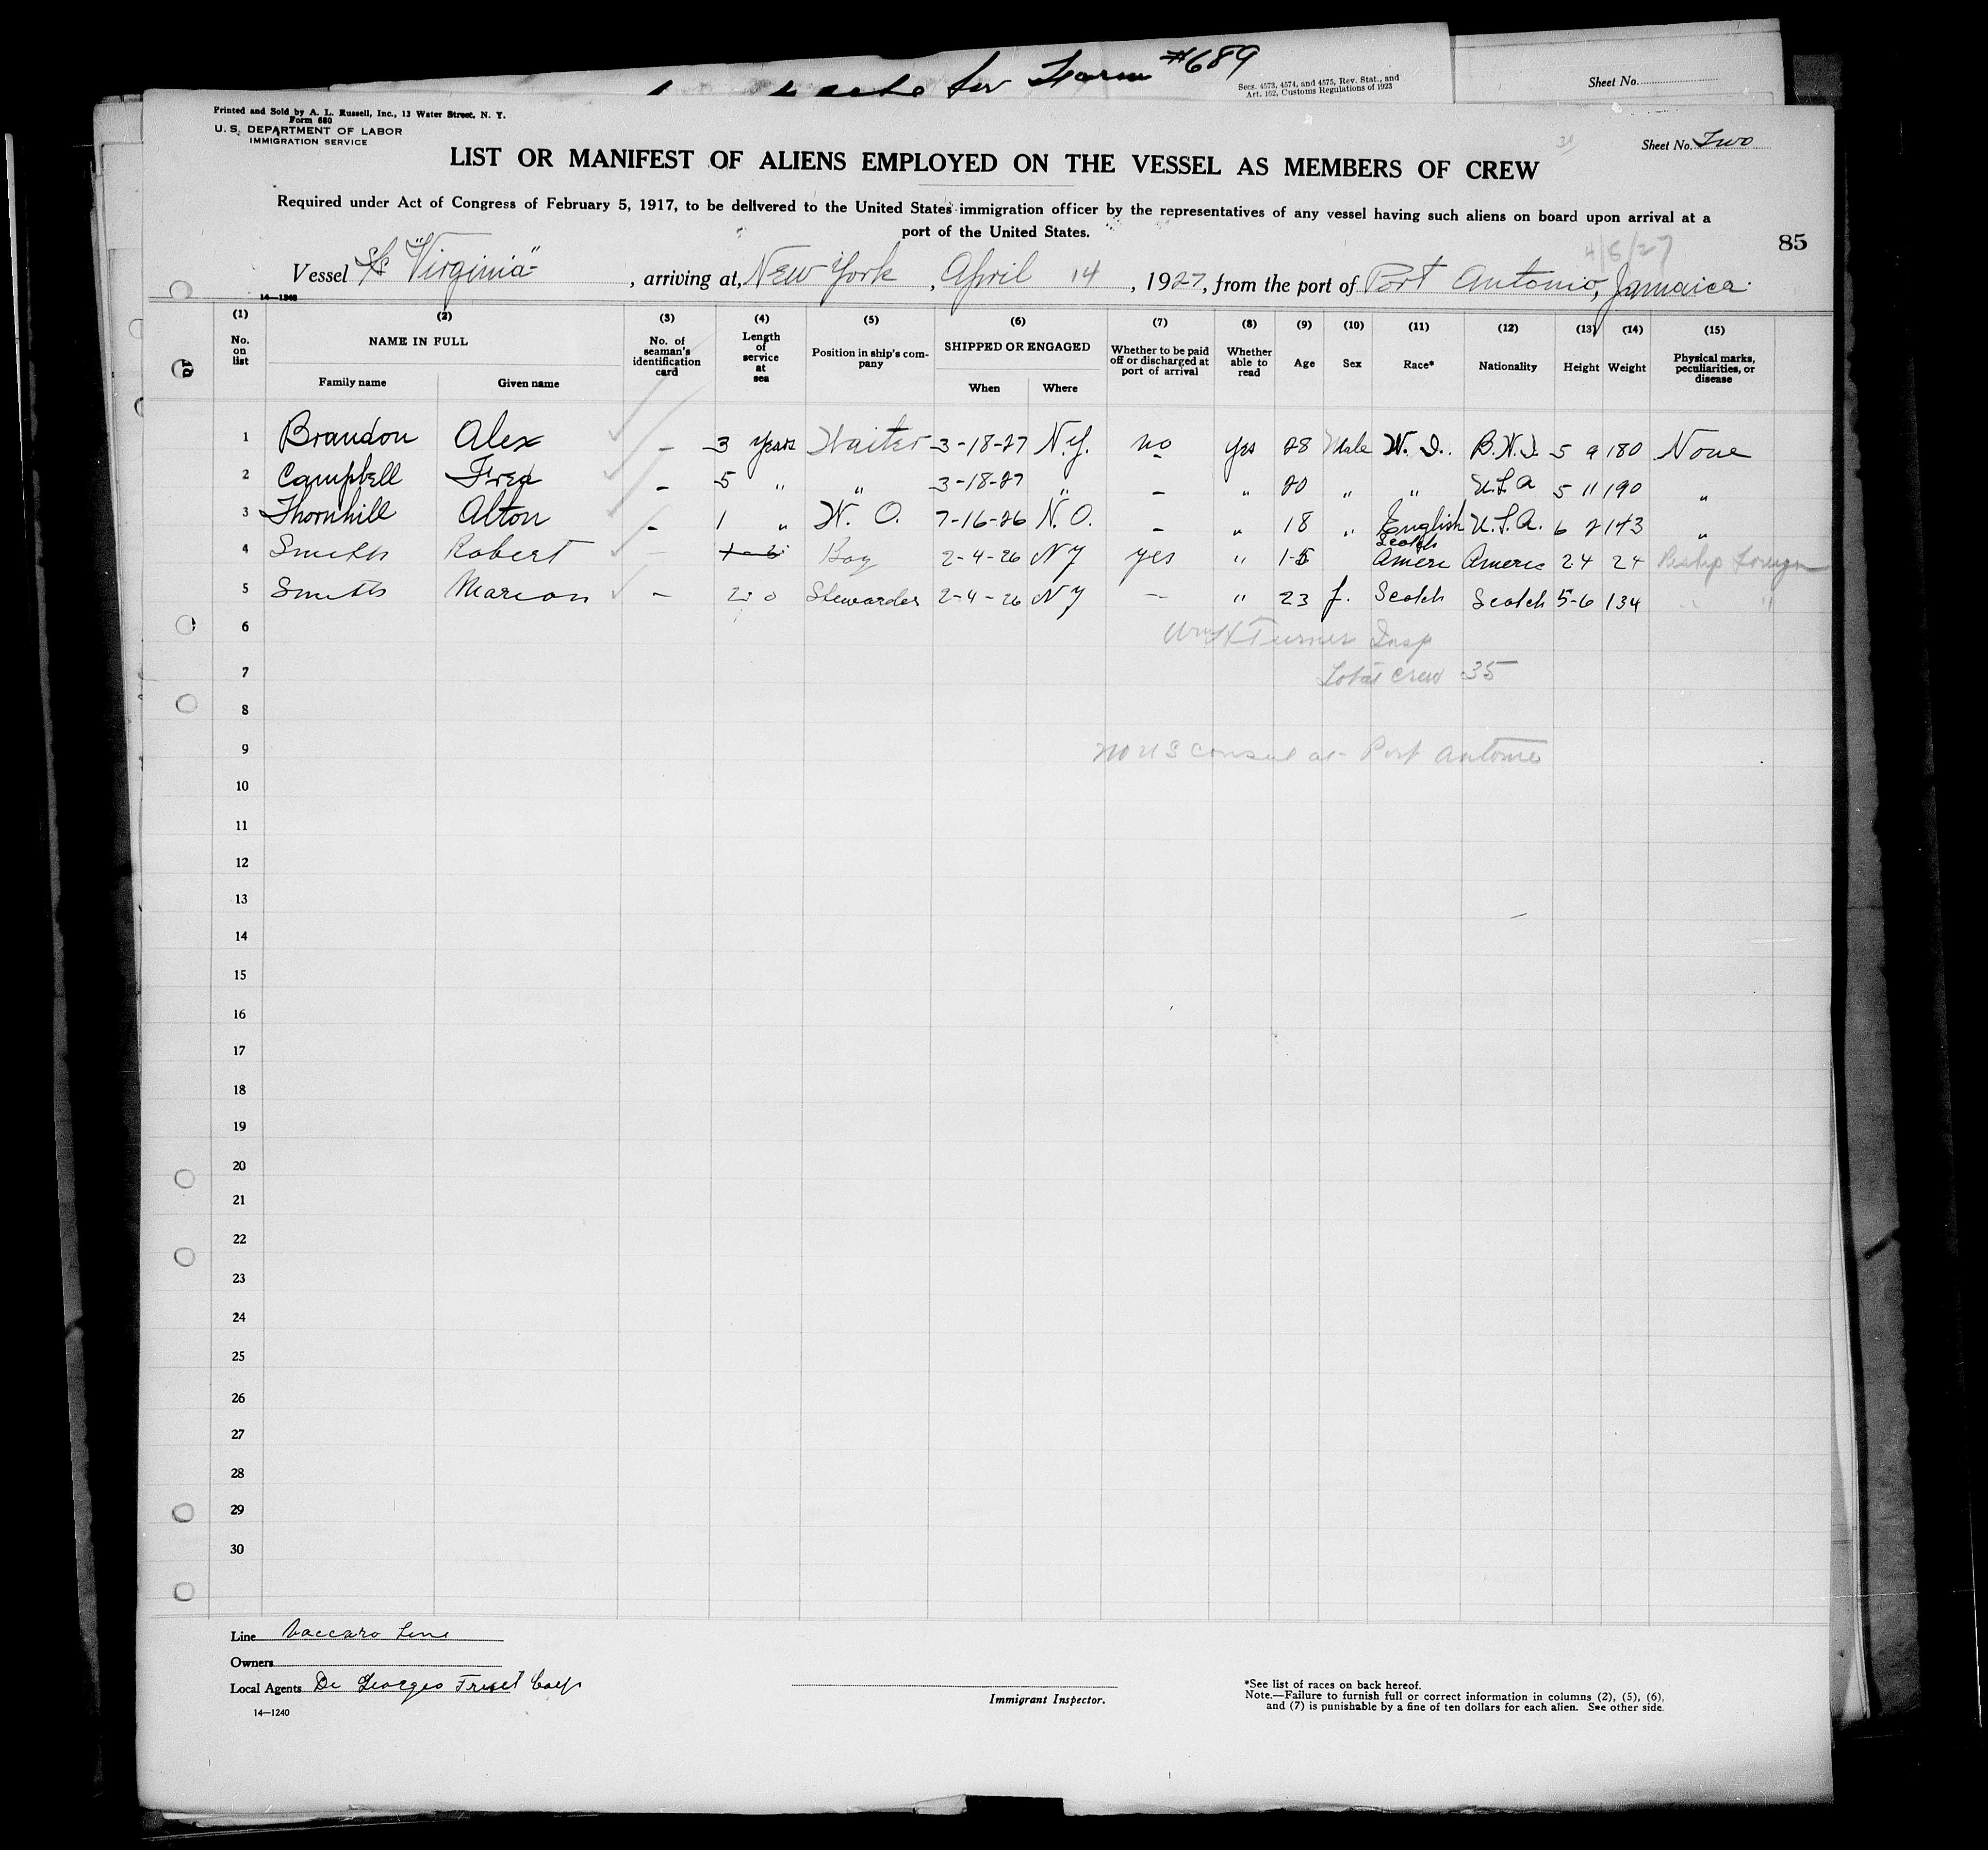 for Form #689
Secs. 4573, 4574, and 4575, Rev. Stat., and
Art. 162, Customs Regulations of 1923
Sheet No.
Printed and Sold by A. L. Russell, Inc., 13 Water Street, N. Y.
Form 680
U. S. DEPARTMENT OF LABOR
IMMIGRATION SERVICE
Sheet No. Two
LIST OR MANIFEST OF ALIENS EMPLOYED ON THE VESSEL AS MEMBERS OF CREW
Required under Act of Congress of February 5, 1917, to be delivered to the United States immigration officer by the representatives of any vessel having such aliens on board upon arrival at a
port of the United States.
85
4/8/27
Vessel S/S "Virginia", arriving at, New York, April 14, 1927, from the port of Port Antonio, Jamaica
14—1240
(1) No. on list
(2) NAME IN FULL Family name Given name
(3) No. of seaman's identification card
(4) Length of service at sea
(5) Position in ship's company
(6) SHIPPED OR ENGAGED When Where
(7) Whether to be paid off or discharged at port of arrival
(8) Whether able to read
(9) Age
(10) Sex
(11) Race*
(12) Nationality
(13) Height
(14) Weight
(15) Physical marks, peculiarities, or disease
1 Brandon Alex – 3 years Waiter 3-18-27 N.Y. no yes 28 Male W. I. B.W.I. 5 9 180 None
2 Campbell Fred – 5 " " 3-18-27 " – " 20 " " U.S.A 5 11 190 "
3 Thornhill Alton – 1 " W. O. 7-16-26 N.O. – " 18 " English U.S.A. 6 2 143 "
4 Smith Robert – Boy 2-4-26 NY yes " Scotch Ameri Americ 24 24 Reship Foreign
5 Smith Marion – 2 0 Stewardes 2-4-26 NY – " 23 f. Scotch Scotch 5-6 134 "
6 Wm H Turner Insp
7 Total crew 35
8
9 No US Consul at Port Antonio
10
11
12
13
14
15
16
17
18
19
20
21
22
23
24
25
26
27
28
29
30
Line Vaccaro Line
Owners
Local Agents De Georges Fruit Corp
14—1240
Immigrant Inspector.
*See list of races on back hereof.
Note.—Failure to furnish full or correct information in columns (2), (5), (6),
and (7) is punishable by a fine of ten dollars for each alien. See other side.